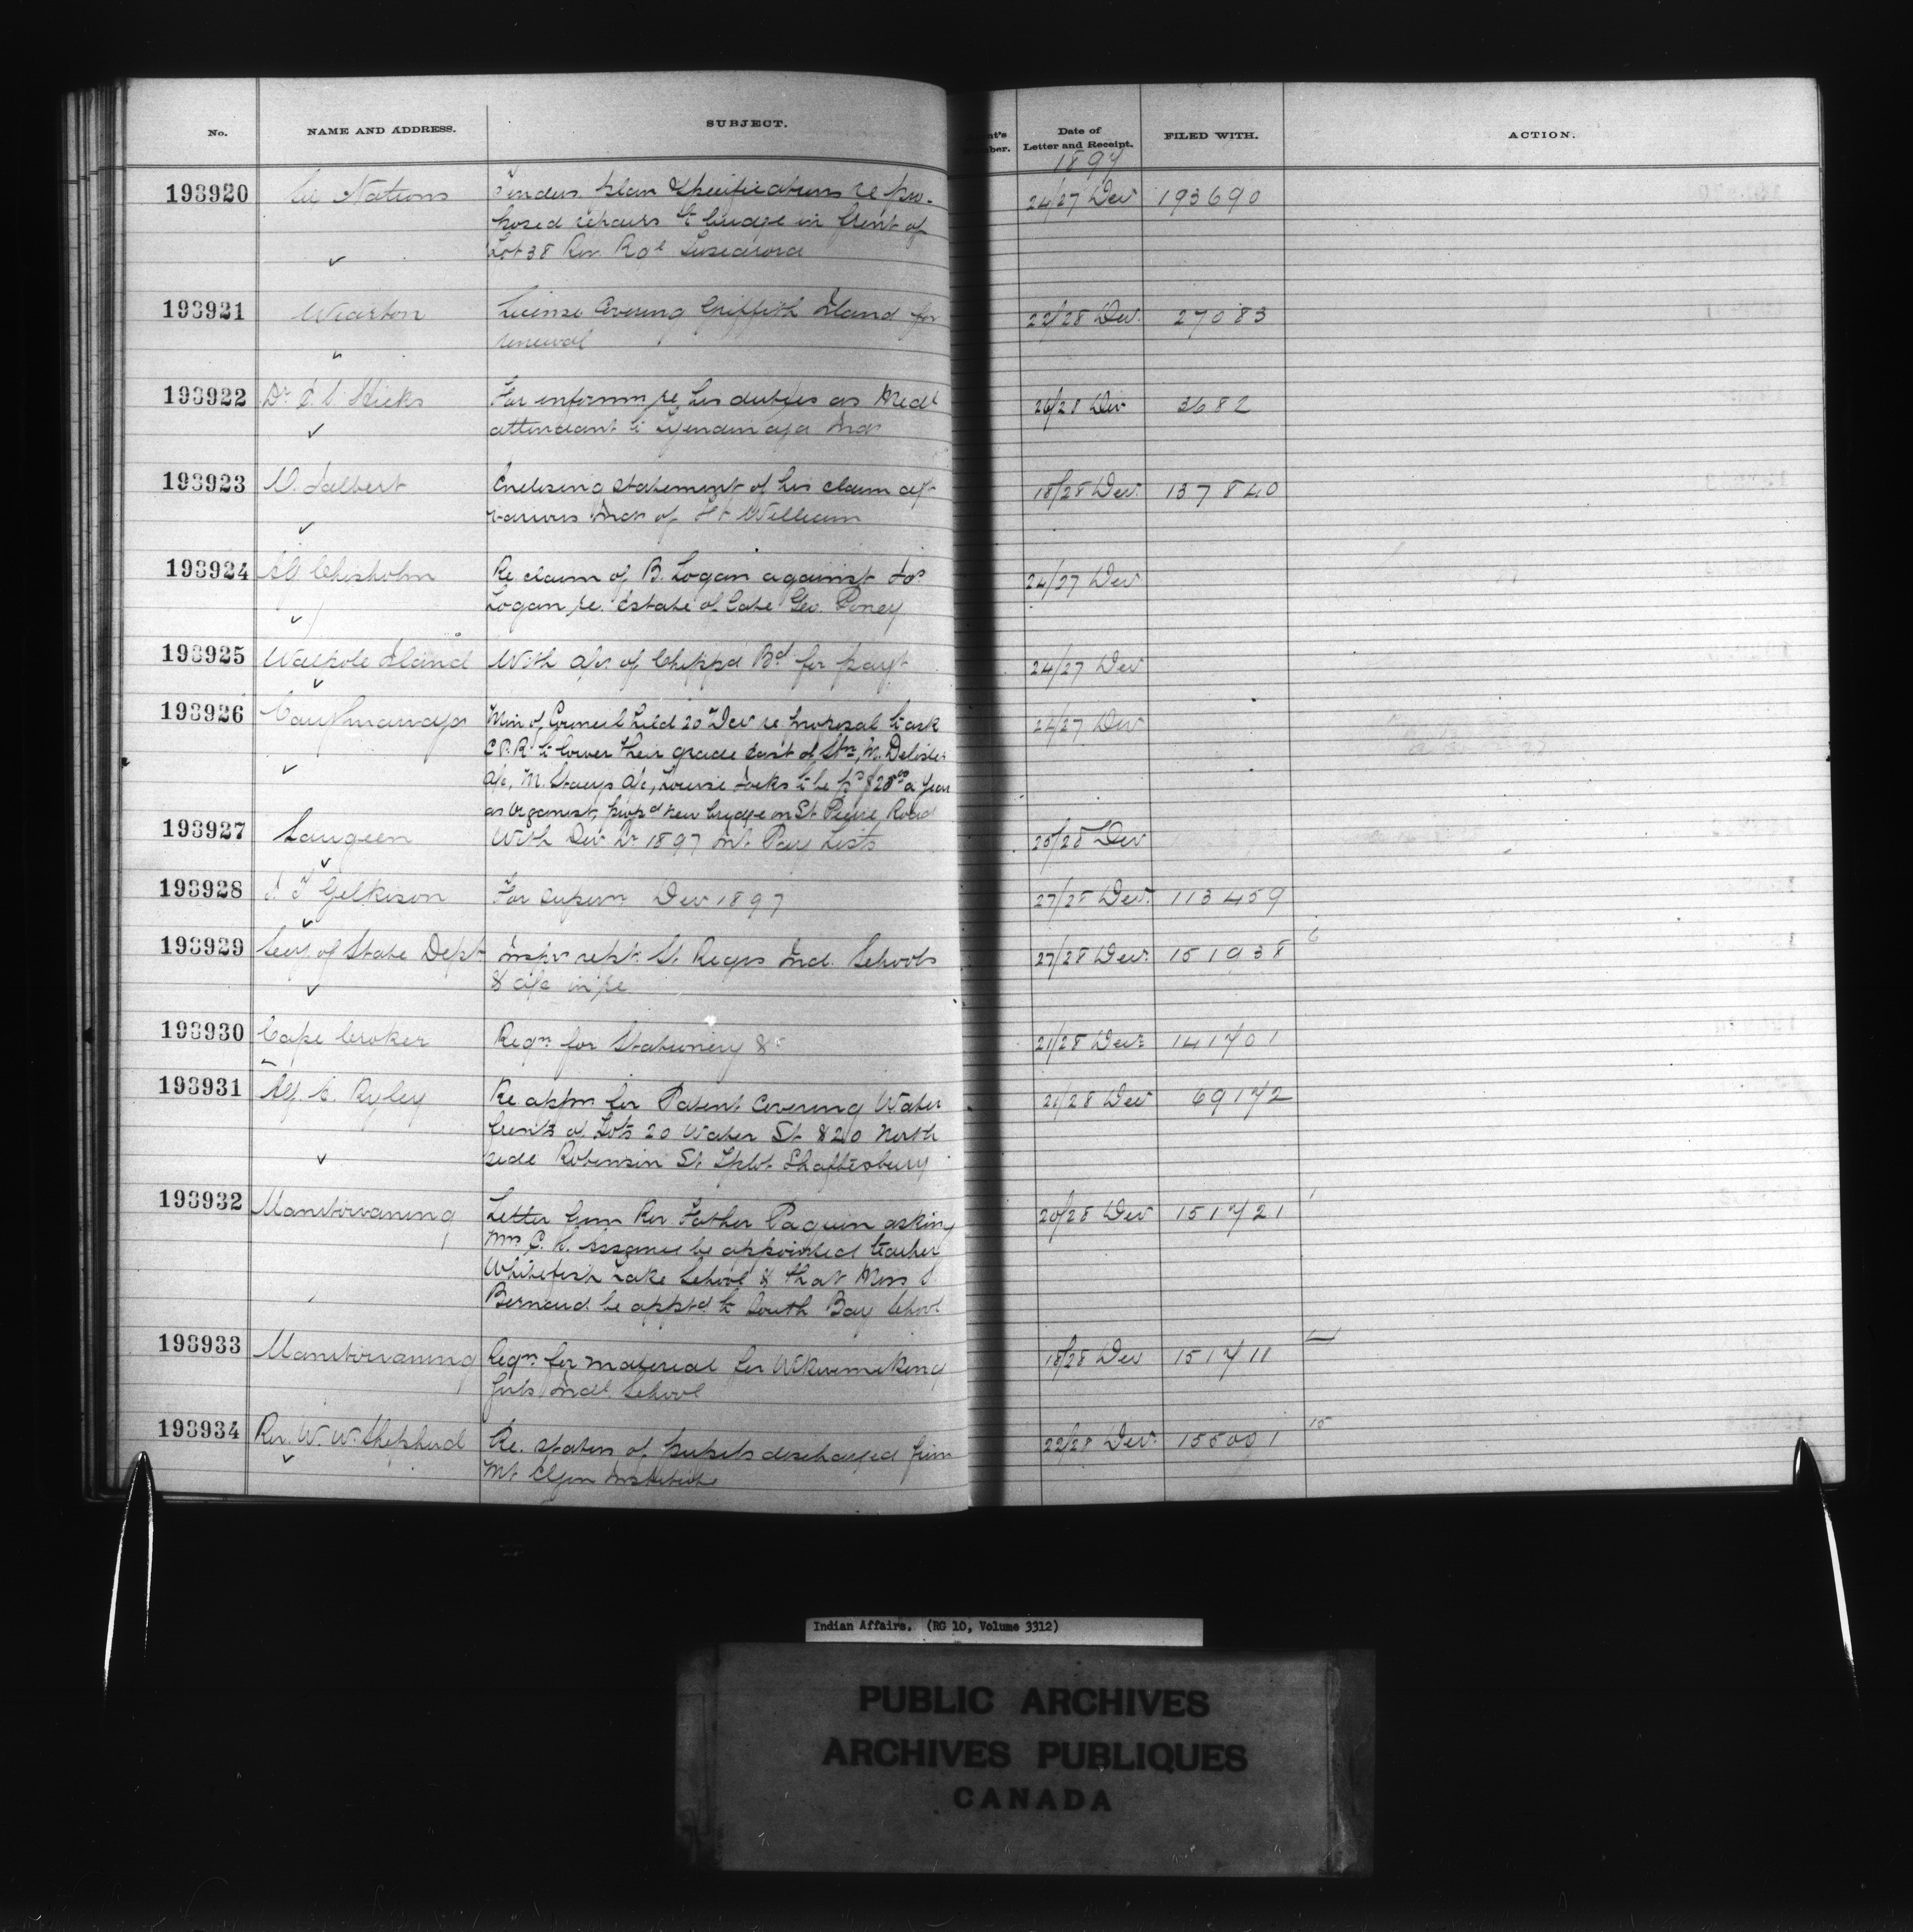 No. NAME AND ADDRESS. SUBJECT. Date of Letter and Receipt. FILED WITH. ACTION.
1897
193920 Six Nations Tenders plan & specifications re pro- 24/27 Decr 193690
posed repairs to bridge in front of
Lot 38 Riv. R Tuscarora
193921 Wiarton License Covering Griffith Island for 22/28 Decr 27083
renewal
193922 Dr Hicks For informn re his duties as Medl 26/28 Decr 3682
attendant to Tyendinaga Inds
193923 Talbert Enclosing statement of his claim agt 18/28 Decr 137840
various Inds of Ft William
193924 AG Chisholm Re claim of B. Logan against Jos 24/27 Decr
Logan, re. Estate of late Geo.
193925 Walpole Island With a/c of Chippa Bd for payt 24/27 Decr
193926 Caughnawaga Min of Council held 20th Decr re proposal to ask 24/27 Decr
C.P.R. to lower their grade East of Stn, M. Delisle
a/c, M. a/c, Louise Jocks to be pd $20.00 a year
as Organist, propd new bridge on St Pierre Road
193927 Saugeen With Decr Qr 1897 Int. Pay Lists 28 Decr
193928 Gilkison For supern Decr 1897 27/28 Decr 113459
193929 Secy of State Dept Inspr rept. St. Regis Ind. Schools 27/28 Decr 151938 6
& a/c in re
193930 Cape Croker Reqn for Stationery &c 21/28 Decr 141701
193931 C. Ryley Re appn for Patent Covering Water 21/28 Decr 69172
fronts of Lots 20 Water St & 20 North
side Robinson St. Tplot Shaftesbury
193932 Manitowaning Letter from Rev. Father Paquin asking 20/28 Decr 151721 1
be appointed teacher
Whitefish Lake School & that Miss
Bernard be apptd to South Bay School
193933 Manitowaning Reqn for material for Wikwemikong 18/28 Decr 151711
Girls Indl School
193934 Rev. W. W. Shepherd Re. status of pupils discharged from 22/28 Decr 155091 15
Mt Elgin Institute
Indian Affairs. (RG 10, Volume 3312)
PUBLIC ARCHIVES
ARCHIVES PUBLIQUES
CANADA